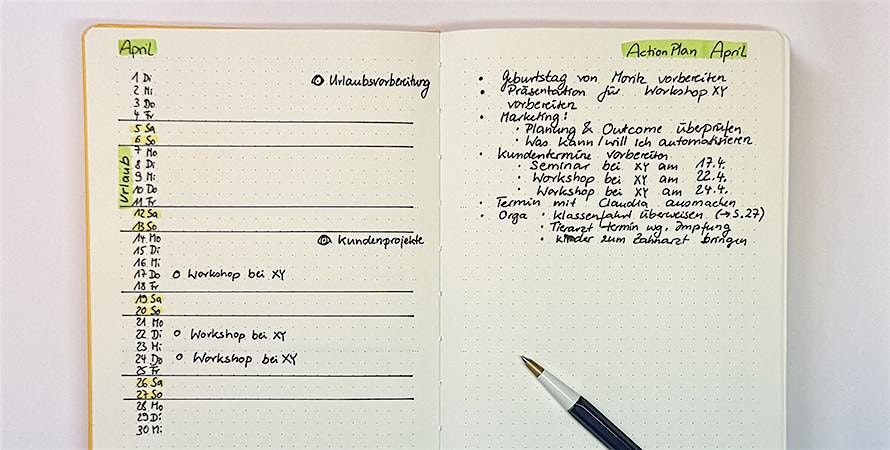 April
1 Di
Urlaubsvorbereitung
2 Mi
3 Do
4 Fr
5 Sa
6 So
7 Mo
Urlaub
8 Di
9 Mi
10 Do
11 Fr
12 Sa
13 So
14 Mo
Kundenprojekte
15 Di
16 Mi
17 Do o Workshop bei XY
18 Fr
19 Sa
20 So
21 Mo
22 Di o Workshop bei XY
23 Mi
24 Do o Workshop bei XY
25 Fr
26 Sa
27 So
28 Mo
29 Di
30 Mi
Action Plan April
• Geburtstag von Moritz vorbereiten
• Präsentation für Workshop XY
vorbereiten
• Marketing:
• Planung & Outcome überprüfen
• Was kann/will ich automatisieren
• Kundentermine vorbereiten
• Seminar bei XY am 17.4.
• Workshop bei XY am 22.4.
• Workshop bei XY am 24.4.
• Termin mit Claudia ausmachen
• Orga • Klassenfahrt überweisen (→ S.27)
• Tierarzt termin wg. Impfung
• Kinder zum Zahnarzt bringen